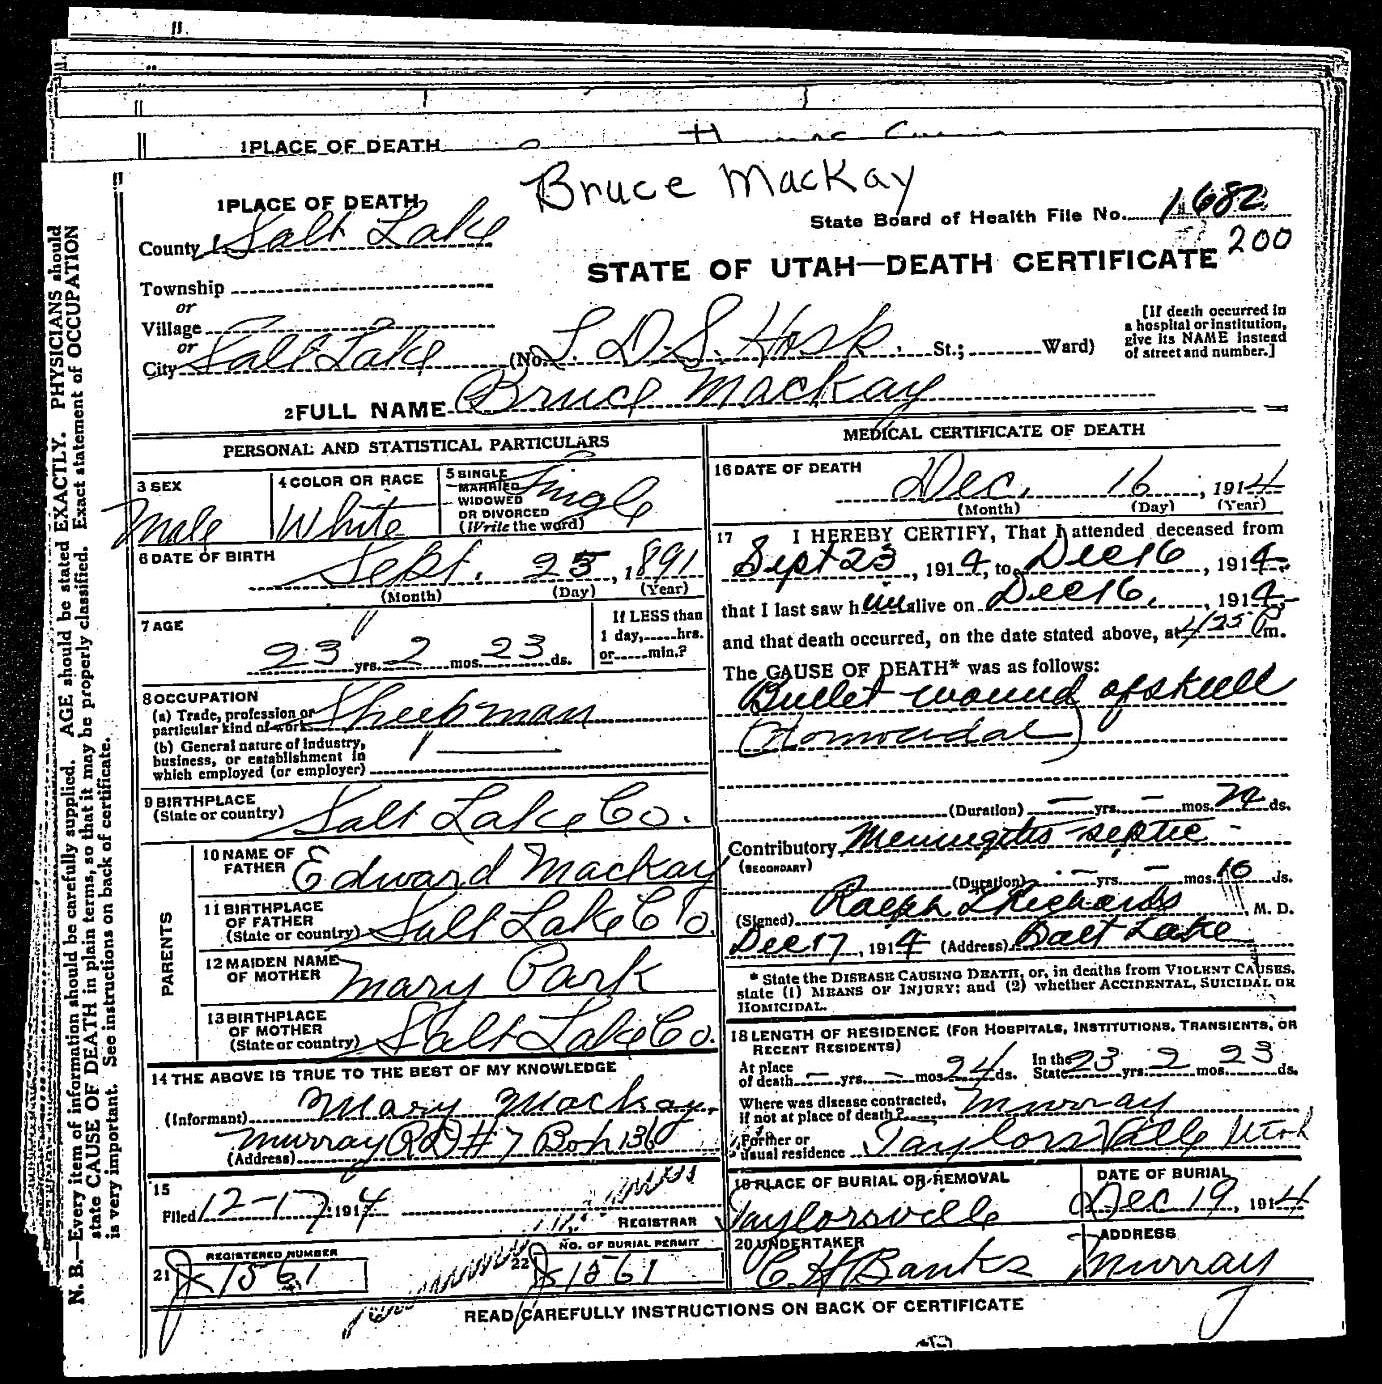 1PLACE OF DEATH
Bruce Mackay
1PLACE OF DEATH
County Salt Lake
State Board of Health File No. 1682
200
STATE OF UTAH—DEATH CERTIFICATE
Township
or
Village
or
City Salt Lake (No. L.D.S. Hosp. St.; Ward)
[If death occurred in
a hospital or institution,
give its NAME instead
of street and number.]
2FULL NAME Bruce Mackay
PERSONAL AND STATISTICAL PARTICULARS
3 SEX
Male
4 COLOR OR RACE
White
5 SINGLE
MARRIED
WIDOWED
OR DIVORCED
(Write the word)
Single
6 DATE OF BIRTH
Sept. 23, 1891
(Month) (Day) (Year)
7 AGE
23 yrs. 2 mos. 23 ds.
If LESS than
1 day, hrs.
or min.?
8 OCCUPATION
(a) Trade, profession or
particular kind of work Sheepman
(b) General nature of industry,
business, or establishment in
which employed (or employer)
9 BIRTHPLACE
(State or country) Salt Lake Co.
PARENTS
10 NAME OF
FATHER Edward Mackay
11 BIRTHPLACE
OF FATHER
(State or country) Salt Lake Co.
12 MAIDEN NAME
OF MOTHER Mary Park
13 BIRTHPLACE
OF MOTHER
(State or country) Salt Lake Co.
14 THE ABOVE IS TRUE TO THE BEST OF MY KNOWLEDGE
(Informant) Mary Mackay.
(Address) Murray RD #7 Box 136
15
Filed 12-17, 1914
REGISTRAR
REGISTERED NUMBER
21 1561
NO. OF BURIAL PERMIT
22 1561
MEDICAL CERTIFICATE OF DEATH
16 DATE OF DEATH
Dec. 16, 1914
(Month) (Day) (Year)
17 I HEREBY CERTIFY, That I attended deceased from
Sept 23, 1914, to Dec 16, 1914,
that I last saw him alive on Dec 16, 1914,
and that death occurred, on the date stated above, at 4:25 P m.
The CAUSE OF DEATH* was as follows:
Bullet wound of skull
(Homocidal)
(Duration) — yrs. — mos. ds.
Contributory Meningitis - septic -
(SECONDARY)
(Duration) — yrs. — mos. 10 ds.
(Signed) Ralph Richards, M. D.
Dec 17, 1914 (Address) Salt Lake
* State the DISEASE CAUSING DEATH, or, in deaths from VIOLENT CAUSES,
state (1) MEANS OF INJURY; and (2) whether ACCIDENTAL, SUICIDAL OR
HOMICIDAL.
18 LENGTH OF RESIDENCE (FOR HOSPITALS, INSTITUTIONS, TRANSIENTS, OR
RECENT RESIDENTS)
At place
of death — yrs. — mos. 24 ds. In the
State 23 yrs. 2 mos. 23 ds.
Where was disease contracted,
if not at place of death? Murray
Former or
usual residence Taylorsville Utah
19 PLACE OF BURIAL OR REMOVAL
Taylorsville
DATE OF BURIAL
Dec 19, 1914
20 UNDERTAKER
C H Banks
ADDRESS
Murray
READ CAREFULLY INSTRUCTIONS ON BACK OF CERTIFICATE
N. B.—Every item of information should be carefully supplied. AGE should be stated EXACTLY. PHYSICIANS should
state CAUSE OF DEATH in plain terms, so that it may be properly classified. Exact statement of OCCUPATION
is very important. See instructions on back of certificate.